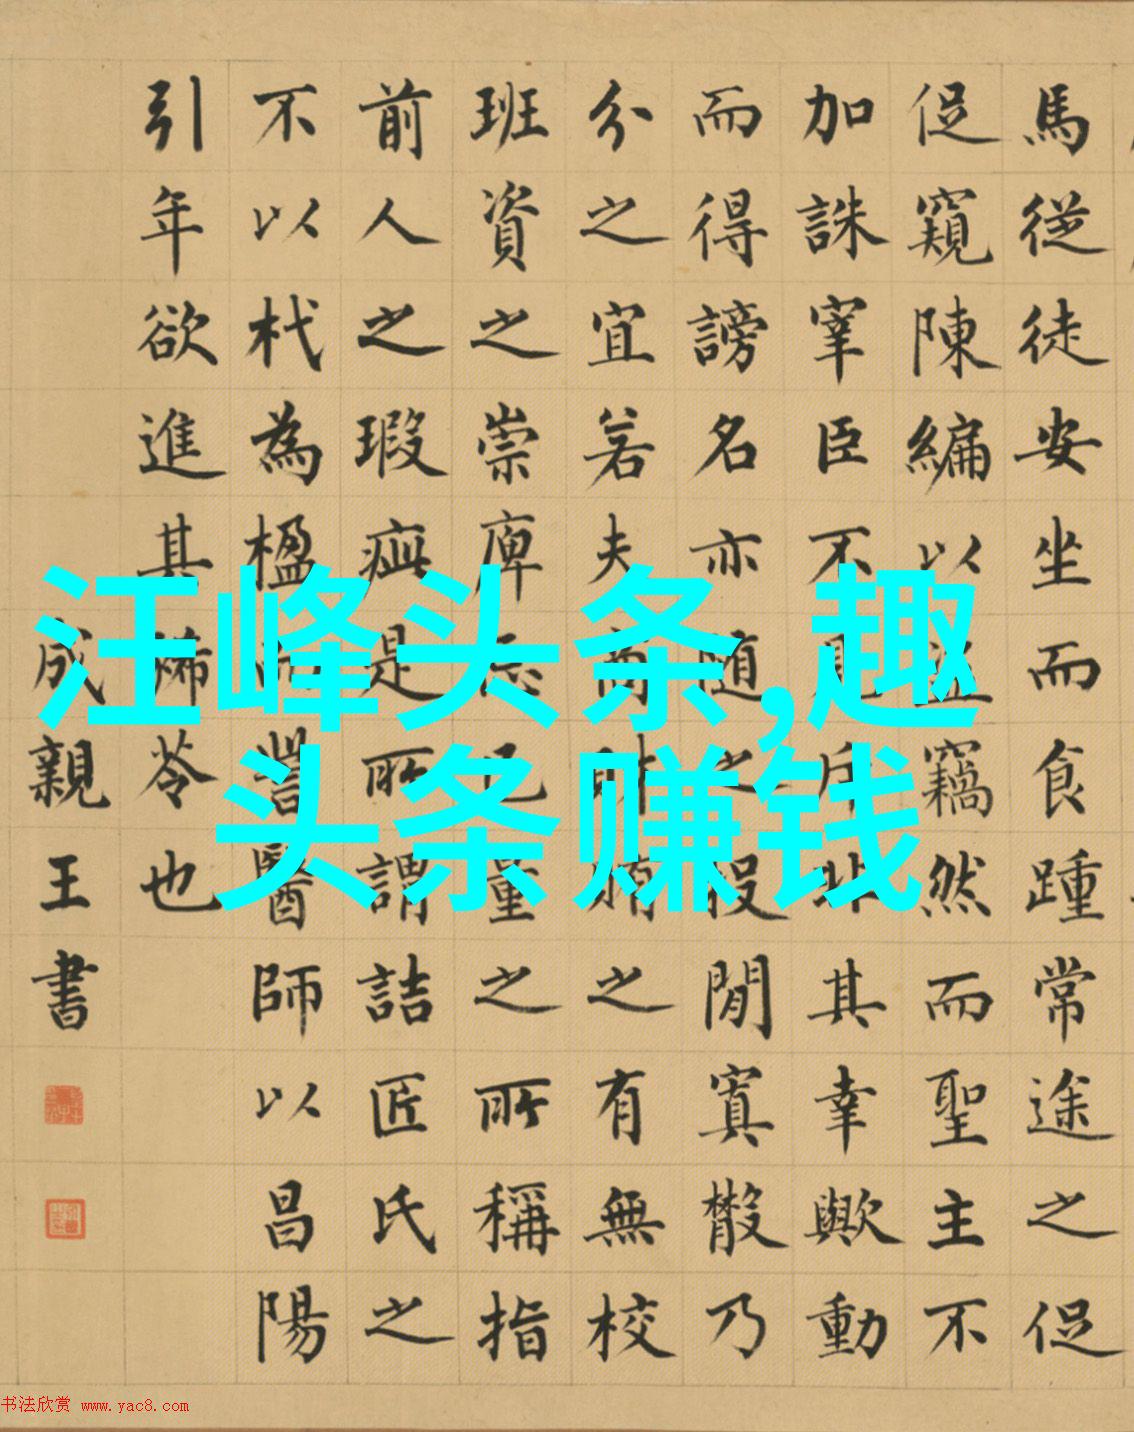 馬從徒安坐而食踵常途之促
促窺陳編以盜竊然而聖主不
加誅宰臣不見斥非其幸歟動
而得謗名亦随之投閒寘散乃
分之宜若夫商財賄之有無校
班資之崇庳忘己量之所稱指
前人之瑕疵是所謂詰匠氏之
不以杙為楹而訾醫師以昌陽
引年欲進其豨苓也
成親王書
汪峰头条,趣
头条赚钱
书法欣赏 www.yac8.com